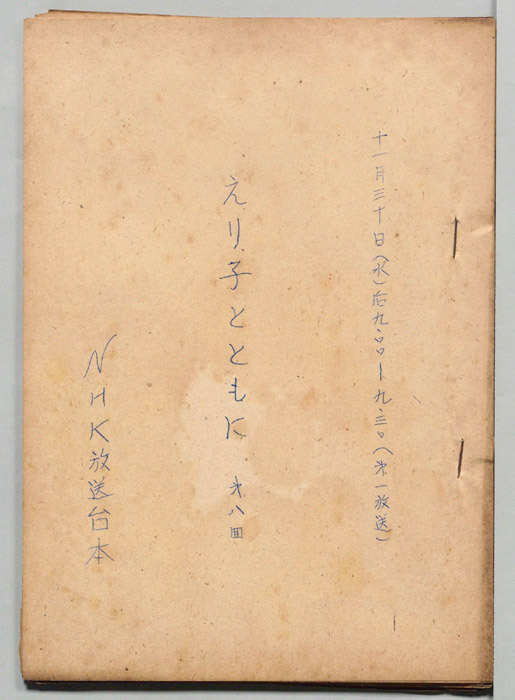 十一月三十日(水)后九.〇〇―九.三〇(㐧一放送)
えり子とともに 㐧八回
NHK放送台本